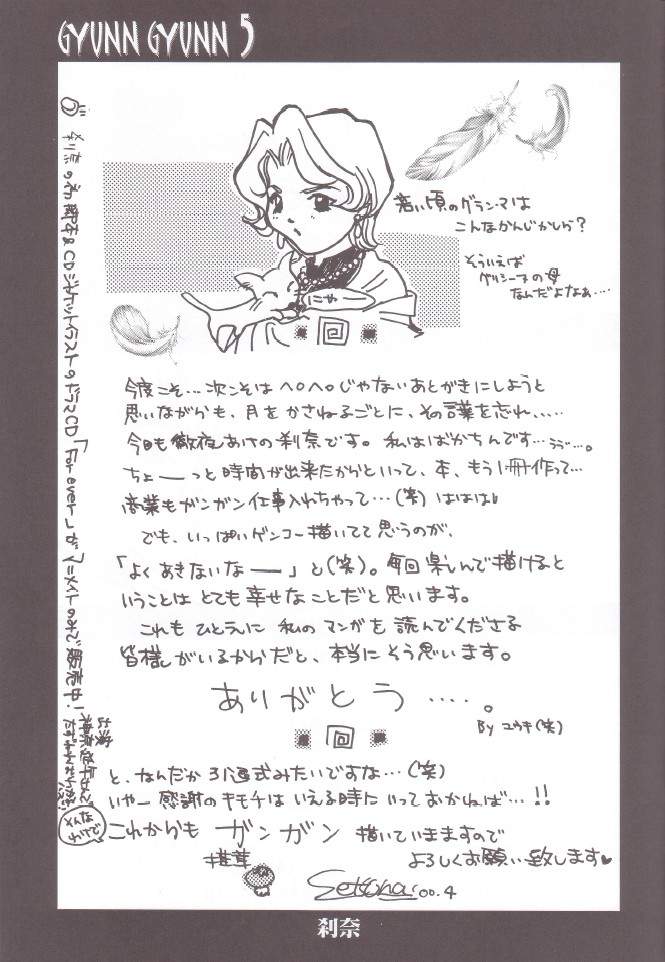 GYUNN GYUNN 5
若い頃のグランマは
こんなかんじかしら?
そういえば
グリシーヌの母
なんだよなぁ‥‥
にゃ
今度こそ…次こそはヘロヘロじゃないあとがきにしようと
思いながらも、月をかさねるごとに、その言葉を忘れ、‥‥
今日も徹夜あけの刹奈です。私はばかちんです…ううう…。
ちょーっと時間が出来たからといって、本、もう1冊作って…
商業もガンガン仕事入れちゃって…(笑)ははは♥
でも、いっぱいゲンコー描いてて思うのが、
「よくあきないなー」と(笑)。毎回楽しんで描けると
いうことはとても幸せなことだと思います。
これもひとえに私のマンガを読んでくださる
皆様がいるからだと、本当にそう思います。
ありがとう‥‥。
By ユウキ(笑)
と、なんだか引退式みたいですな…(笑)
いやー感謝のキモチはいえる時にいっておかねば…!!
これからもガンガン描いていきますので
よろしくお願い致します♥
椎茸
Setsuna. 00.4
刹奈の初CDジャケットイラストのドラマCD「For ever…」がアニメイトのみで販売中!
出演
そんな
わけで
刹奈